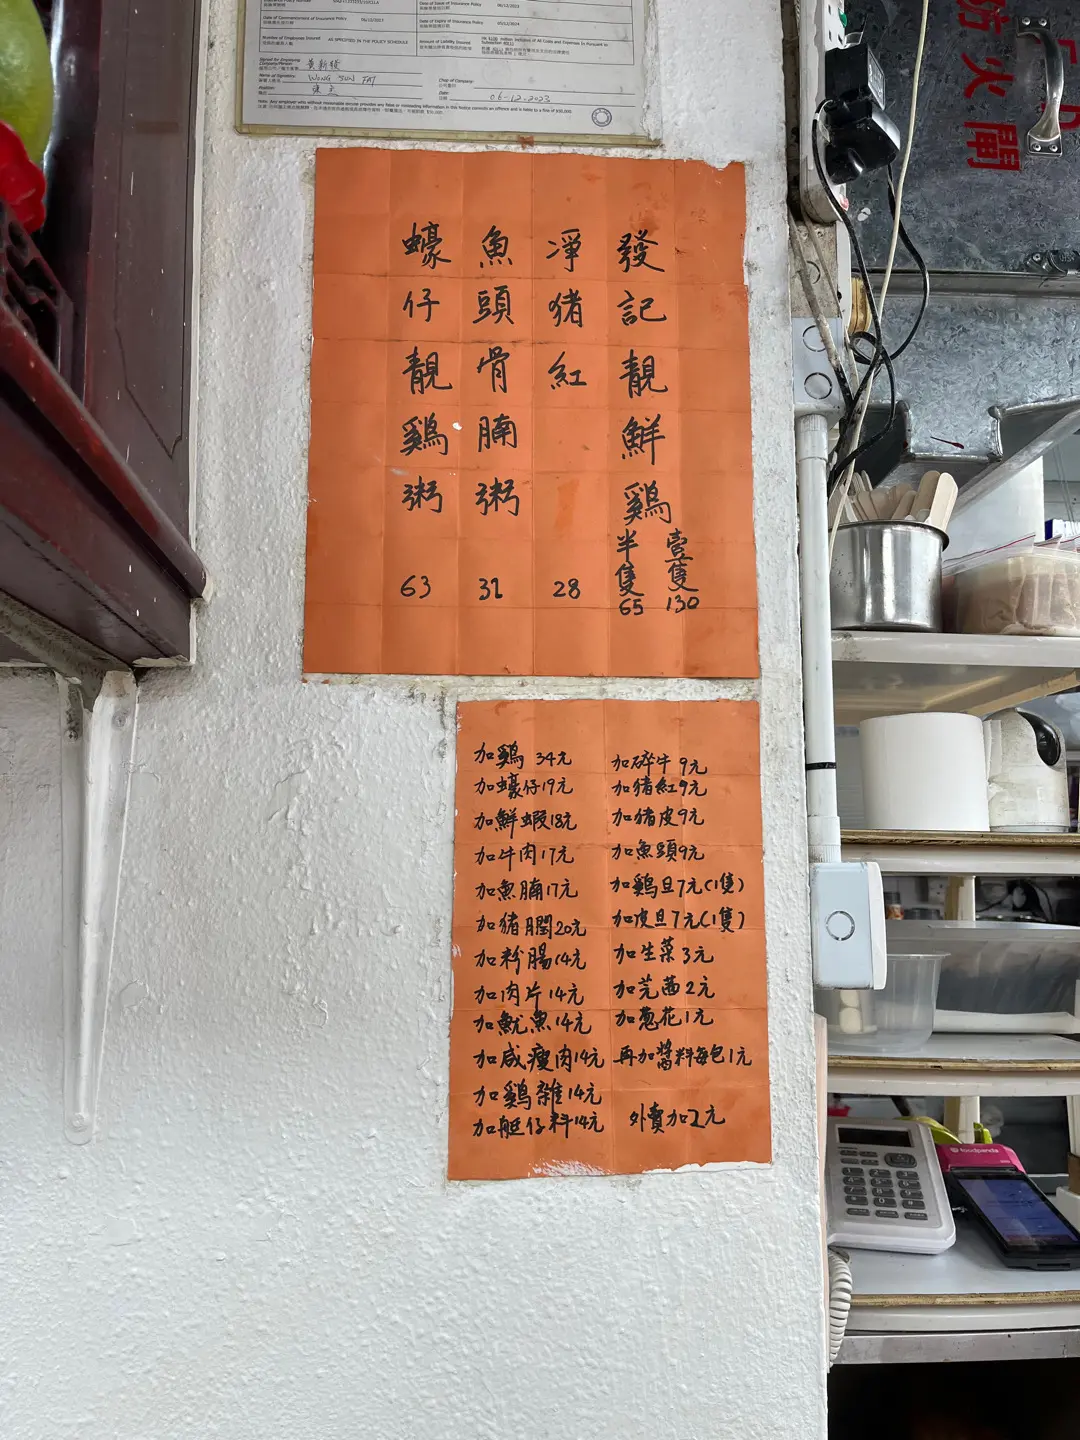 Date of Commencement of Insurance Policy
Date of Expiry of Insurance Policy
Number of Employees Insured
AS SPECIFIED IN THE POLICY SCHEDULE
Amount of Liability Insured
Name of Signatory
WONG SUN FAT
Position
Chop of Company
Date
06-12-2023
發記靚鮮鷄
壹隻 130
半隻 65
凈猪紅 28
魚頭骨腩粥 31
蠔仔靚鷄粥 63
加鷄 34元
加蠔仔19元
加鮮蝦18元
加牛肉17元
加魚腩17元
加猪膶20元
加粉腸14元
加肉片14元
加魷魚14元
加咸瘦肉14元
加鷄雜14元
加艇仔料14元
加碎牛9元
加猪紅9元
加猪皮9元
加魚頭9元
加鷄旦7元(1隻)
加皮旦7元(1隻)
加生菜3元
加芫茜2元
加葱花1元
再加醬料每包1元
外賣加2元
防火閘
foodpanda